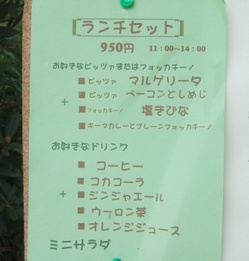 [ランチセット]
950円 11:00~14:00
お好きなピッツァまたはフォッカチーノ
■ピッツァ マルゲリータ
■ピッツァ ベーコンとしめじ
+
■フォッカチーノ 塩きびな
■キーマカレーとプレーンフォッカチーノ
お好きなドリンク
■コーヒー
■コカコーラ
+ ■ジンジャエール
■ウーロン茶
■オレンジジュース
ミニサラダ